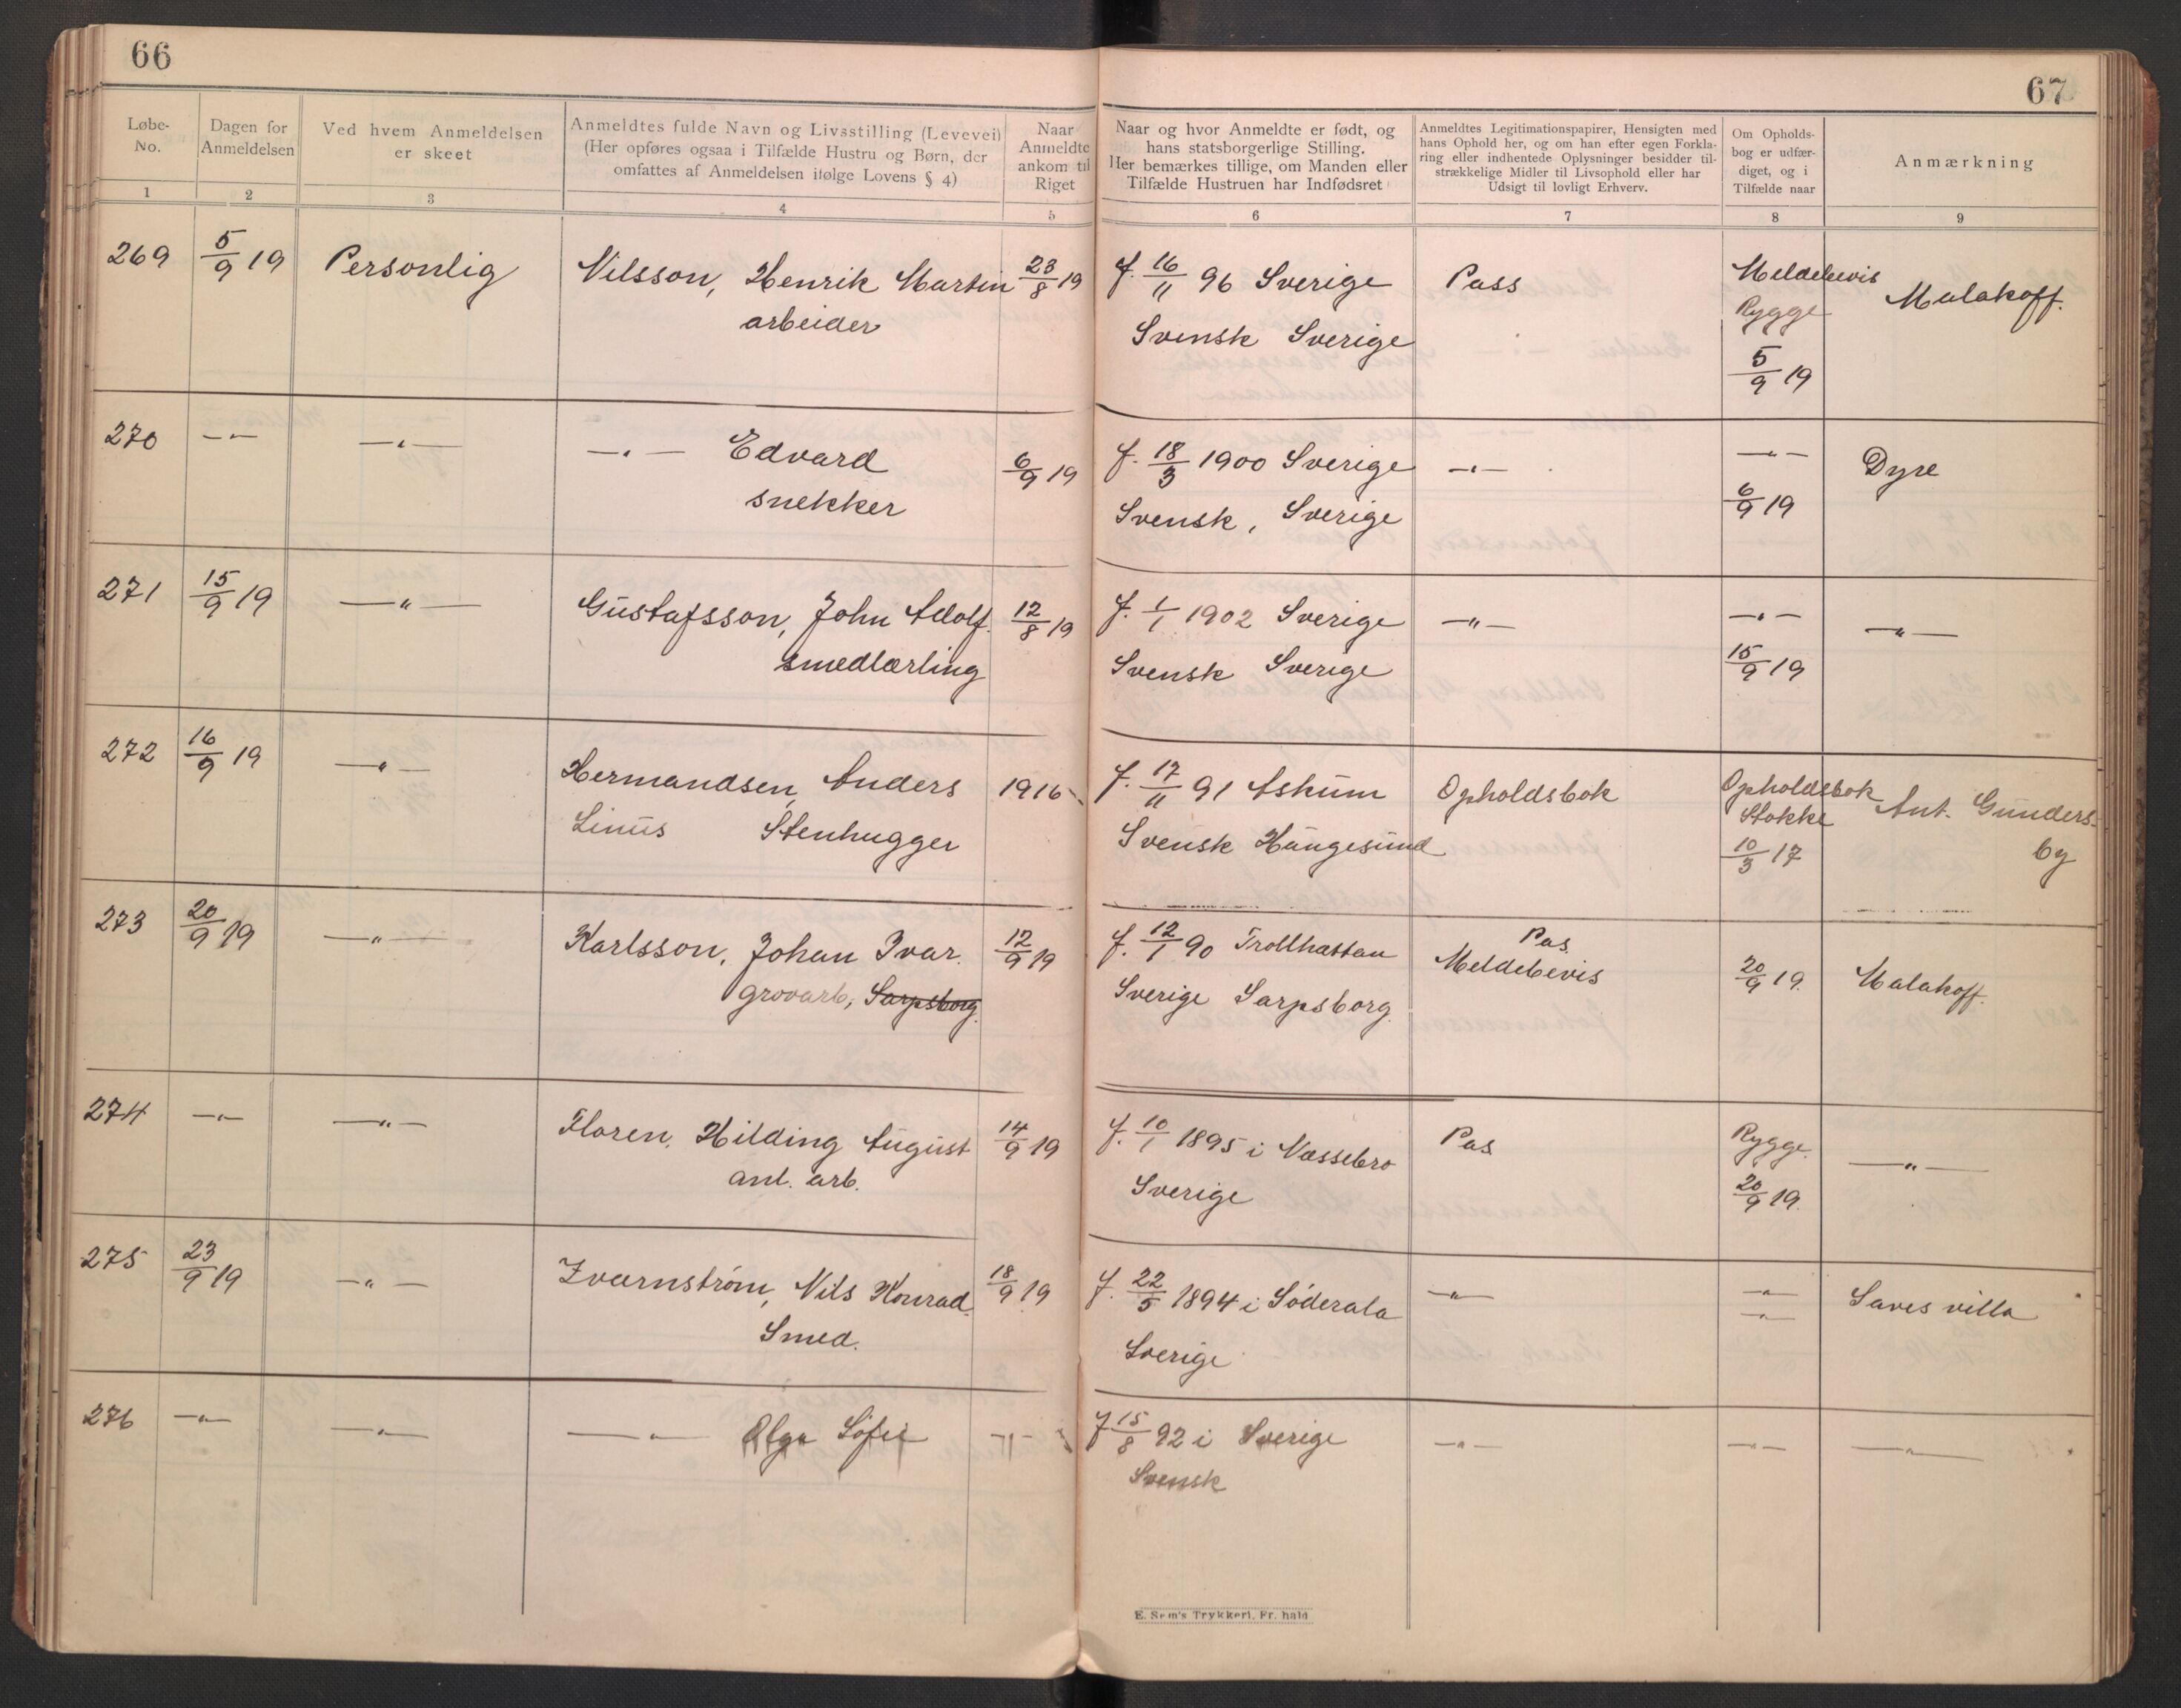 66
67
Løbe-No.
Dagen for Anmeldelsen
Ved hvem Anmeldelsen er skeet
Anmeldtes fulde Navn og Livsstilling (Levevei)
(Her opføres ogsaa i Tilfælde Hustru og Børn, der
omfattes af Anmeldelsen ifølge Lovens § 4)
Naar Anmeldte ankom til Riget
Naar og hvor Anmeldte er født, og
hans statsborgerlige Stilling.
Her bemærkes tillige, om Manden eller
Tilfælde Hustruen har Indfødsret
Anmeldtes Legitimationspapirer, Hensigten med
hans Ophold her, og om han efter egen Forkla-
ring eller indhentede Oplysninger besidder til-
strækkelige Midler til Livsophold eller har
Udsigt til lovligt Erhverv.
Om Opholds-
bog er udfær-
diget, og i
Tilfælde naar
Anmærkning
1 2 3 4 5 6 7 8 9
269 5/9 19 Personlig Nilsson, Henrik Martin 23/8 19 f. 16/11 96 Sverige Pass Meldebevis Malakoff.
arbeider Svensk Sverige Rygge
5/9 19
270 —"— —"— —"— Edvard 6/9 19 f. 18/3 1900 Sverige —"— —"— Dyre
snekker Svensk, Sverige 6/9 19
271 15/9 19 —"— Gustafsson, John Adolf. 12/8 19 f. 1/1 1902 Sverige —"— —"— —"—
smedlærling Svensk Sverige 15/9 19
272 16/9 19 —"— Hermandsen, Anders 1916 f. 17/11 91 Askum Opholdsbok Opholdsbok Ant. Gunders-
Linus Stenhugger Svensk Haugesund Stokke by
10/3 17
273 20/9 19 —"— Karlsson, Johan Ivar. 12/9 19 f. 12/1 90 Trollhattan Pas 20/9 19. Malakoff.
grovarb, Sarpsborg. Sverige Sarpsborg. Meldebevis
274 —"— —"— Floren, Hilding August 14/9 19 f. 10/1 1895 i Nassebro Pas Rygge. —"—
anl. arb. Sverige 20/9 19.
275 23/9 19 —"— Zvarnström, Nils Konrad. 18/9 19 f. 22/5 1894 i Söderala —"— —"— Saves villa
Smed. Sverige —"—
276 —"— —"— —"— Olga Sofie —"— f 15/8 92 i Sverige —"— —"— —"—
Svensk
E. Sem's Trykkeri, Fr. hald